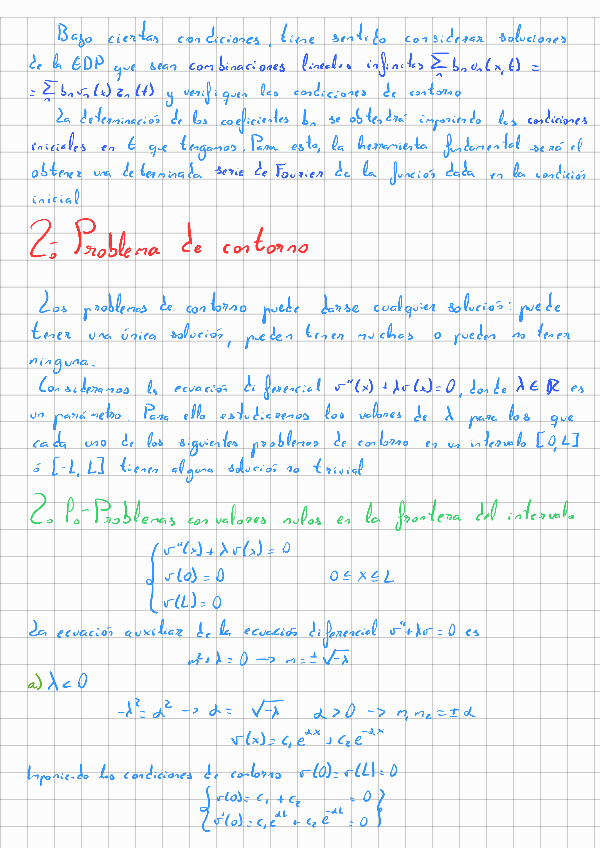 Bajo ciertas condiciones, tiene sentido considerar soluciones
de la EDP que sean combinaciones lineales infinitas ∑ₙ bₙuₙ(x,t) =
= ∑ₙ bₙvₙ(x)zₙ(t) y verifiquen las condiciones de contorno
La determinación de los coeficientes bₙ se obtendrá imponiendo las condiciones
iniciales en t que tengamos. Para esto, la herramienta fundamental será el
obtener una determinada serie de Fourier de la función dada en la condición
inicial
2. Problema de contorno
Los problemas de contorno puede darse cualquier solución: puede
tener una única solución, pueden tener muchas o pueden no tener
ninguna.
Consideramos la ecuación diferencial v''(x) + λv(x) = 0, donde λ ∈ ℝ es
un parámetro. Para ello estudiaremos los valores de λ para los que
cada uno de los siguientes problemas de contorno en un intervalo [0,L]
ó [-L, L] tienen alguna solución no trivial
2.1.- Problemas con valores nulos en la frontera del intervalo
v''(x) + λv(x) = 0
v(0) = 0 0 ≤ x ≤ L
v(L) = 0
La ecuación auxiliar de la ecuación diferencial v'' + λv = 0 es
m² + λ = 0 → m = ± √-λ
a) λ < 0
-λ² = α² → α = √-λ α > 0 → m₁ m₂ = ± α
v(x) = c₁e^αx + c₂e^-αx
Imponiendo las condiciones de contorno v(0) = v(L) = 0
v(0) = c₁ + c₂ = 0
v(0) = c₁e^αL + c₂e^-αL = 0